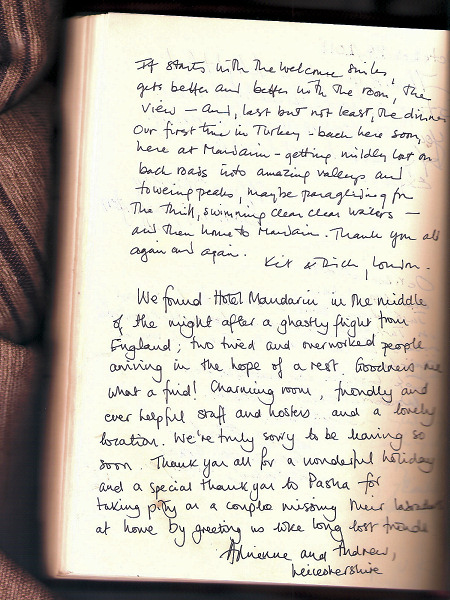 It starts with the welcome smiles,
gets better and better with the room, the
view — and, last but not least, the dinner.
Our first time in Turkey - back here soon,
here at Mandarin - getting mildly lost on
back roads into amazing valleys and
towering peaks, maybe paragliding for
the thrill, swimming clear clear waters —
and then home to Mandarin. Thank you all
again and again.
Kit & Dick, London.
We found Hotel Mandarin in the middle
of the night after a ghastly flight from
England; two tired and overworked people
arriving in the hope of a rest. Goodness me
what a find! Charming room, friendly and
ever helpful staff and hosters and a lovely
location. We're truly sorry to be leaving so
soon. Thank you all for a wonderful holiday
and a special thank you to Pasha for
taking pity on a couple missing their labradors
at home by greeting us like long lost friends
Adrienne and Andrew,
Leicestershire